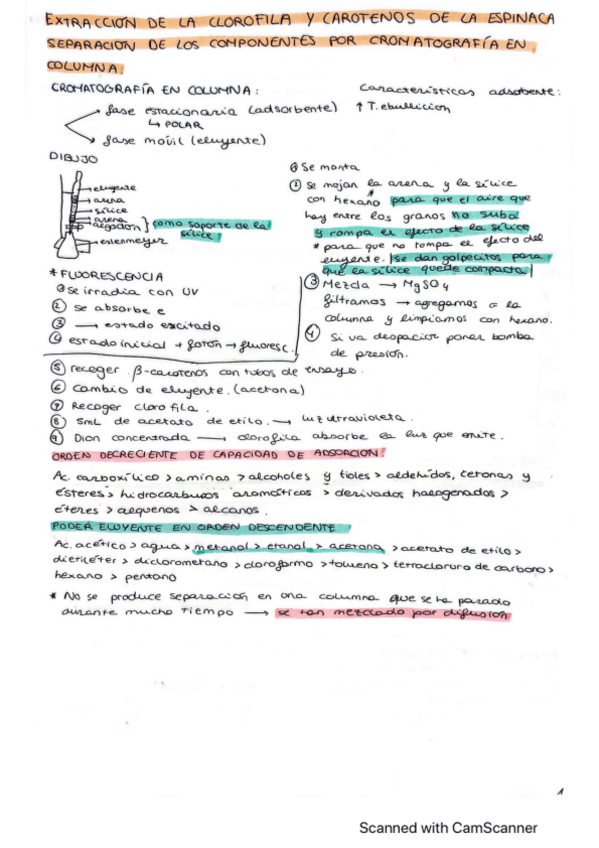 EXTRACCIÓN DE LA CLOROFILA Y CAROTENOS DE LA ESPINACA
SEPARACION DE LOS COMPONENTES POR CROMATOGRAFÍA EN
COLUMNA:
CROMATOGRAFÍA EN COLUMNA:
fase estacionaria (adsorbente)
↳ POLAR
fase movil (eluyente)
Características adsobente:
↑ T. ebullicion
DIBUJO
eluyente
arena
sílice
arena
algodon
erlenmeyer
como soporte de la
sílice
⓪ Se monta
① Se mojan la arena y la sílice
con hexano para que el aire que
hay entre los granos no suba
y rompa el efecto de la sílice
* para que no rompa el efecto del
eluyente. se dan golpecitos para
que la sílice quede compacta
③ Mezcla → MgSO4
filtramos → agregamos a la
columna y limpiamos con hexano.
④ Si va despacior poner bomba
de presión.
* FLUORESCENCIA
① se irradia con UV
② se absorbe e
③ → estado excitado
④ estado inicial + foton → fluoresc.
⑤ recoger β-carotenos con tubos de ensayo.
⑥ cambio de eluyente. (acetona)
⑦ Recoger clorofila.
⑧ 5mL de acetato de etilo. → luz ultravioleta.
⑨ Dion concentrada → clorofila absorbe la luz que emite.
ORDEN DECRECIENTE DE CAPACIDAD DE ADSORCION:
Ac. carboxílico > aminas > alcoholes y tioles > aldehídos, cetonas y
ésteres > hidrocarburos aromáticos > derivados halogenados >
éteres > alquenos > alcanos.
PODER ELUYENTE EN ORDEN DESCENDENTE
Ac. acético > agua > metanol > etanol > acetona > acetato de etilo >
dietiléter > diclorometano > cloroformo > tolueno > tetracloruro de carbono >
hexano > pentano
* No se produce separación en una columna que se ha parado
durante mucho tiempo → se han mezclado por difusión
1
Scanned with CamScanner